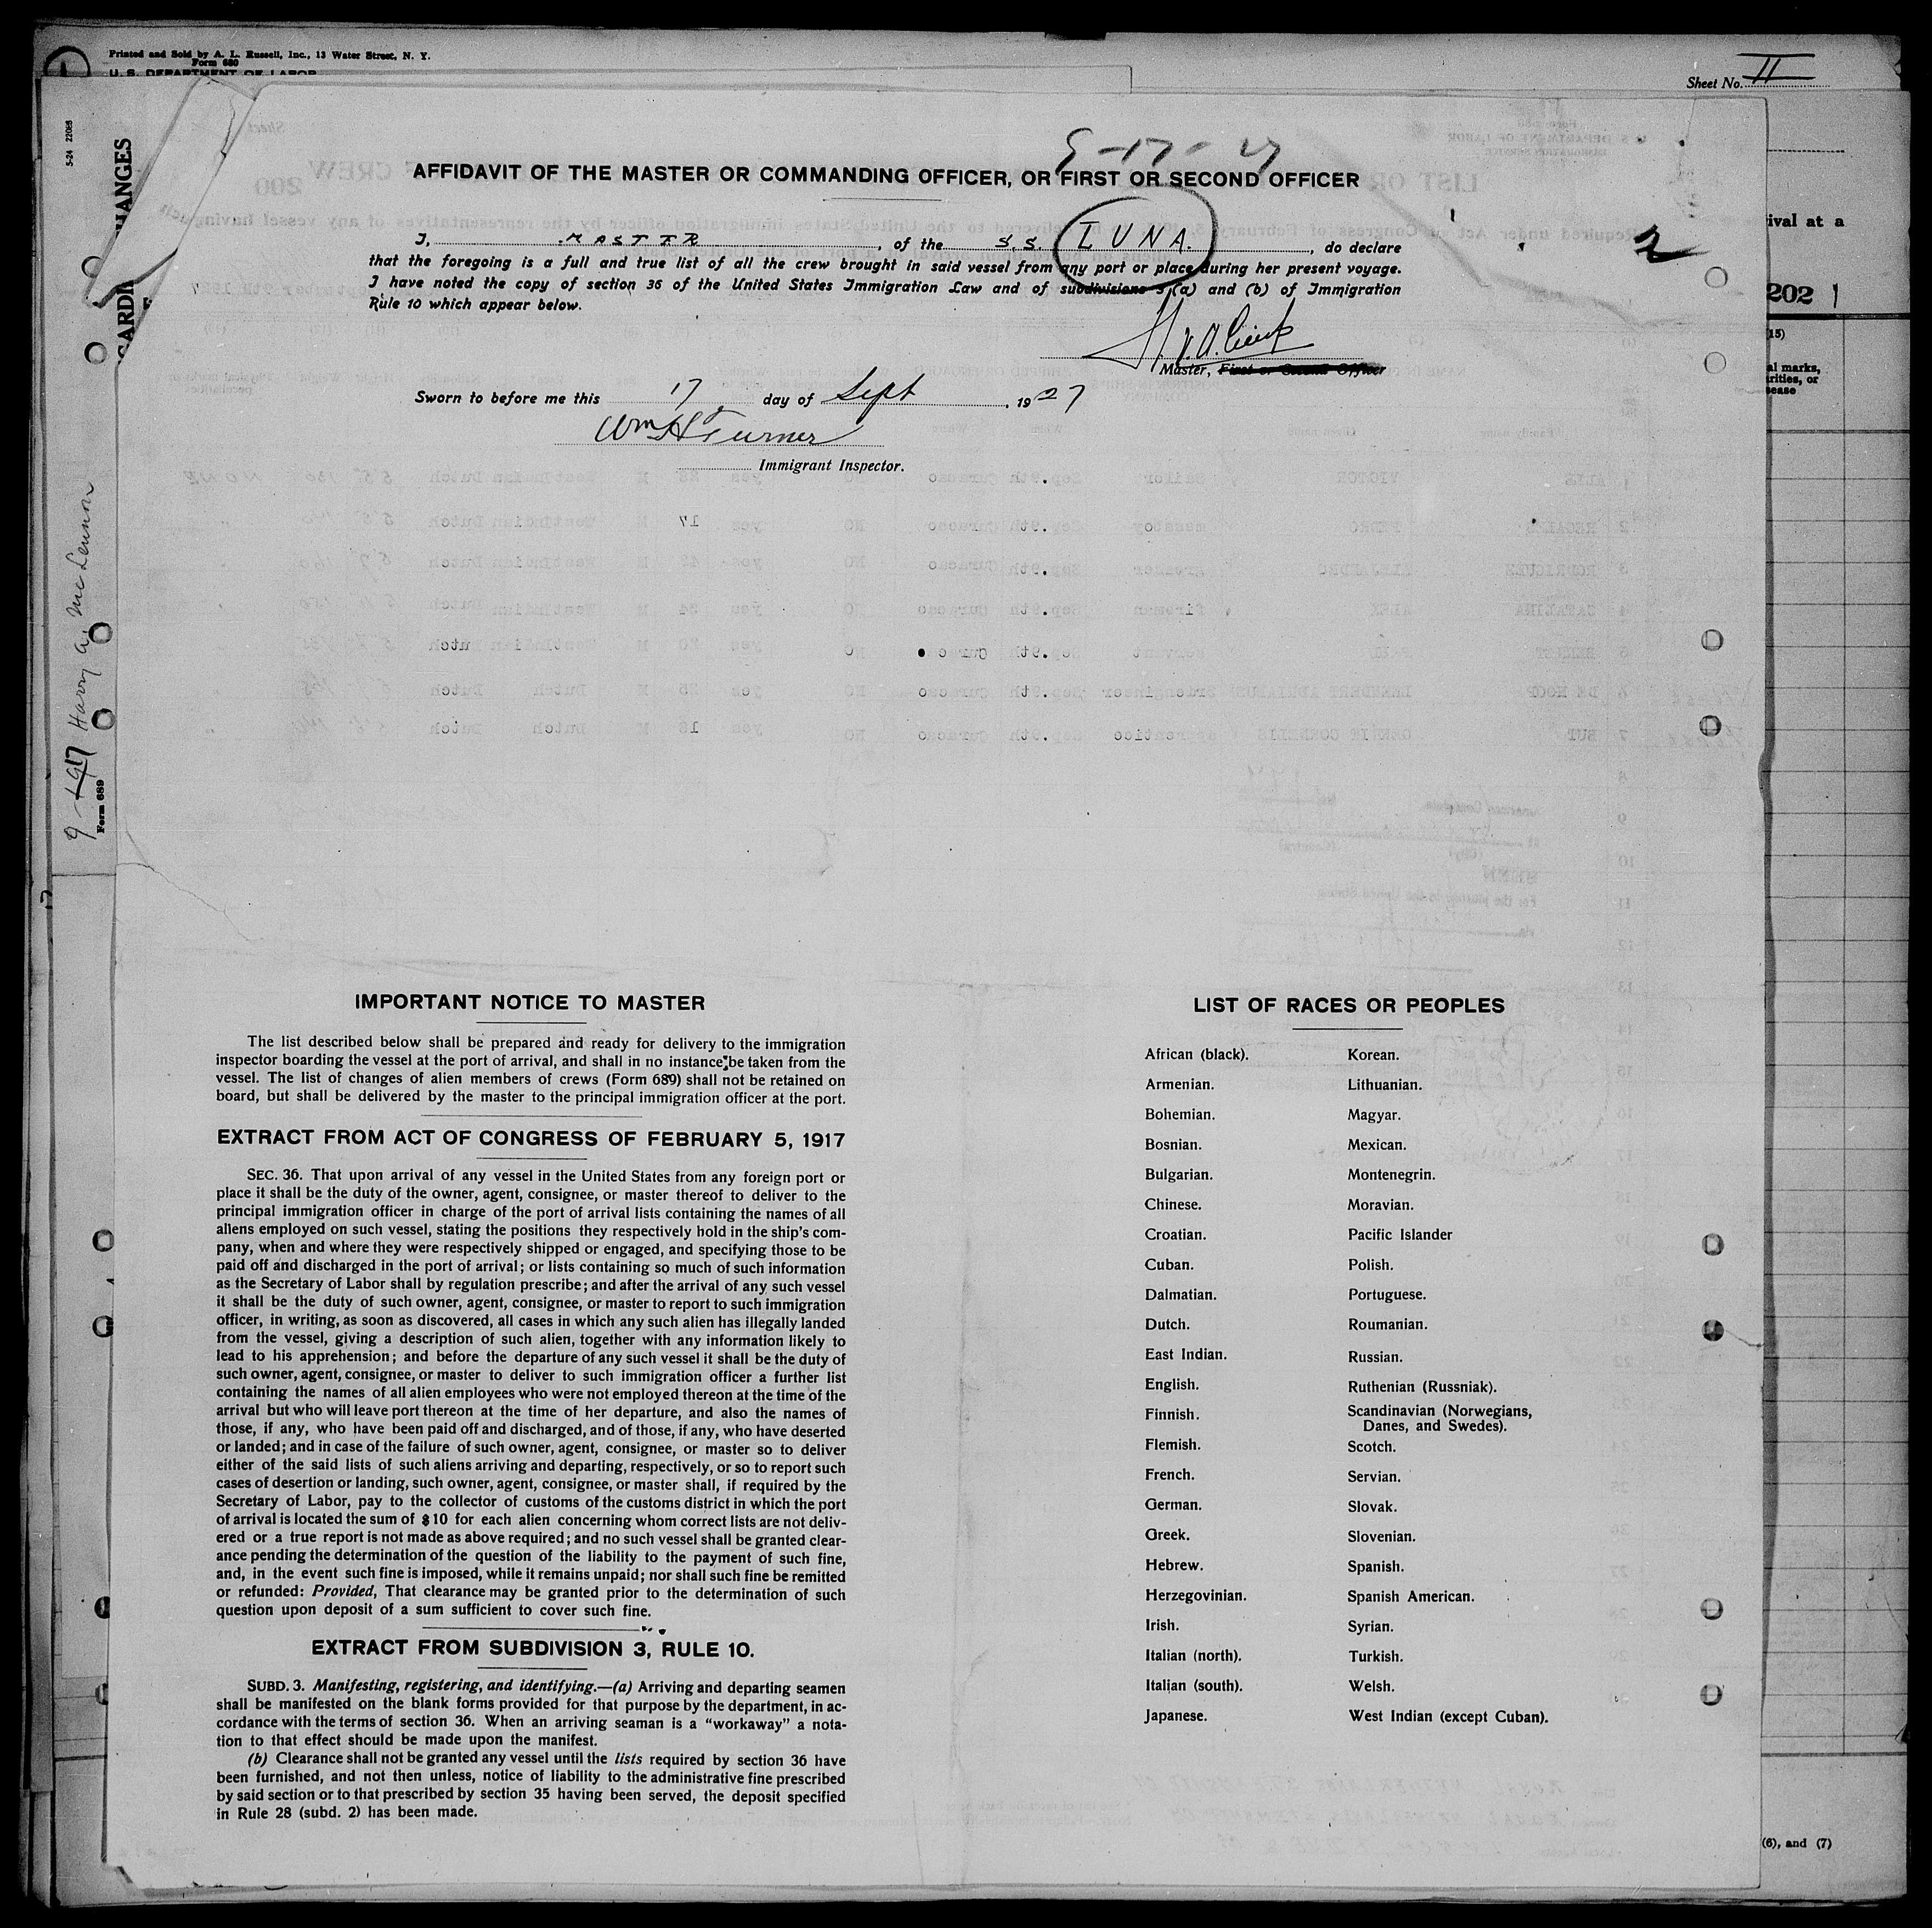 Printed and Sold by A. L. Russell, Inc., 13 Water Street, N. Y.
Form 680
U. S. DEPARTMENT OF LABOR
Sheet No. II
5-24 22068
HANGES
GARDI
9-17-27
AFFIDAVIT OF THE MASTER OR COMMANDING OFFICER, OR FIRST OR SECOND OFFICER
I, MASTER, of the S.S. LUNA., do declare
that the foregoing is a full and true list of all the crew brought in said vessel from any port or place during her present voyage.
I have noted the copy of section 36 of the United States Immigration Law and of subdivisions 3 (a) and (b) of Immigration
Rule 10 which appear below.
2
ival at a
202 1
(15)
al marks,
rities, or
sease
Master, First or Second Officer
Sworn to before me this 17 day of Sept, 1927
Wm H Turner
Immigrant Inspector.
Harry A. McLennon
Form 689
IMPORTANT NOTICE TO MASTER
The list described below shall be prepared and ready for delivery to the immigration
inspector boarding the vessel at the port of arrival, and shall in no instance be taken from the
vessel. The list of changes of alien members of crews (Form 689) shall not be retained on
board, but shall be delivered by the master to the principal immigration officer at the port.
EXTRACT FROM ACT OF CONGRESS OF FEBRUARY 5, 1917
SEC. 36. That upon arrival of any vessel in the United States from any foreign port or
place it shall be the duty of the owner, agent, consignee, or master thereof to deliver to the
principal immigration officer in charge of the port of arrival lists containing the names of all
aliens employed on such vessel, stating the positions they respectively hold in the ship's com-
pany, when and where they were respectively shipped or engaged, and specifying those to be
paid off and discharged in the port of arrival; or lists containing so much of such information
as the Secretary of Labor shall by regulation prescribe; and after the arrival of any such vessel
it shall be the duty of such owner, agent, consignee, or master to report to such immigration
officer, in writing, as soon as discovered, all cases in which any such alien has illegally landed
from the vessel, giving a description of such alien, together with any information likely to
lead to his apprehension; and before the departure of any such vessel it shall be the duty of
such owner, agent, consignee, or master to deliver to such immigration officer a further list
containing the names of all alien employees who were not employed thereon at the time of the
arrival but who will leave port thereon at the time of her departure, and also the names of
those, if any, who have been paid off and discharged, and of those, if any, who have deserted
or landed; and in case of the failure of such owner, agent, consignee, or master so to deliver
either of the said lists of such aliens arriving and departing, respectively, or so to report such
cases of desertion or landing, such owner, agent, consignee, or master shall, if required by the
Secretary of Labor, pay to the collector of customs of the customs district in which the port
of arrival is located the sum of $10 for each alien concerning whom correct lists are not deliv-
ered or a true report is not made as above required; and no such vessel shall be granted clear-
ance pending the determination of the question of the liability to the payment of such fine,
and, in the event such fine is imposed, while it remains unpaid; nor shall such fine be remitted
or refunded: Provided, That clearance may be granted prior to the determination of such
question upon deposit of a sum sufficient to cover such fine.
EXTRACT FROM SUBDIVISION 3, RULE 10.
SUBD. 3. Manifesting, registering, and identifying.—(a) Arriving and departing seamen
shall be manifested on the blank forms provided for that purpose by the department, in ac-
cordance with the terms of section 36. When an arriving seaman is a “workaway” a nota-
tion to that effect should be made upon the manifest.
(b) Clearance shall not be granted any vessel until the lists required by section 36 have
been furnished, and not then unless, notice of liability to the administrative fine prescribed
by said section or to that prescribed by section 35 having been served, the deposit specified
in Rule 28 (subd. 2) has been made.
LIST OF RACES OR PEOPLES
African (black).
Armenian.
Bohemian.
Bosnian.
Bulgarian.
Chinese.
Croatian.
Cuban.
Dalmatian.
Dutch.
East Indian.
English.
Finnish.
Flemish.
French.
German.
Greek.
Hebrew.
Herzegovinian.
Irish.
Italian (north).
Italian (south).
Japanese.
Korean.
Lithuanian.
Magyar.
Mexican.
Montenegrin.
Moravian.
Pacific Islander
Polish.
Portuguese.
Roumanian.
Russian.
Ruthenian (Russniak).
Scandinavian (Norwegians,
Danes, and Swedes).
Scotch.
Servian.
Slovak.
Slovenian.
Spanish.
Spanish American.
Syrian.
Turkish.
Welsh.
West Indian (except Cuban).
(6), and (7)